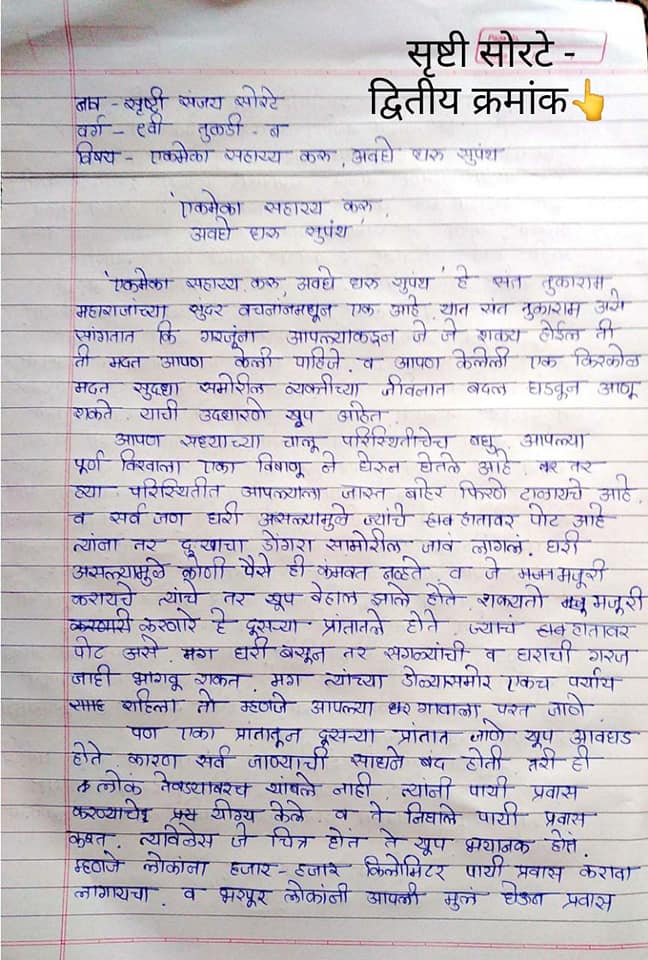 सृष्टी सोरटे -
द्वितीय क्रमांक👆
नाव - सृष्टी संजय सोरटे
वर्ग - ९वी तुकडी - ब
विषय - एकमेका सहाय्य करू, अवघे धरू सुपंथ
'एकमेका सहाय्य करू,
अवघे धरू सुपंथ'
'एकमेका सहाय्य करू, अवघे धरू सुपंथ' हे संत तुकाराम
महाराजांच्या सुंदर वचनांनमधून एक आहे. यात संत तुकाराम असे
सांगतात कि गरजूंना आपल्याकडून जे जे शक्य होईल ती
ती मदत आपण केली पाहिजे. व आपण केलेली एक किरकोळ
मदत सुदधा समोरील व्यक्तीच्या जीवनात बदल घडवून आणू
शकते. याची उदधारणे खूप आहेत.
आपण सध्याच्या चालू परिस्थितीचेच बघु. आपल्या
पूर्ण विश्वाला एका विषाणू ने घेरून घेतले आहे. तर
ह्या परिस्थितीत आपल्याला जास्त बाहेर फिरणे टाळायचे आहे.
व सर्व जण घरी असल्यामुळे ज्यांचे हातावर पोट आहे
त्यांना तर दुःखाचा डोंगरा सामोरील जावं लागलं. घरी
असल्यामुळे कोणी पैसे ही कमवत नव्हते व जे मजुरी
करायचे त्यांचे तर खूप बेहाल झाले होते. शक्यतो मजूरी
करणारे हे दूसऱ्या प्रांतातले होते. ज्याचं हातावर
पोट असे. मग घरी बसून तर सगळ्यांची व घराची गरज
नाही भागवू शकत. मग त्यांच्या डोळ्यासमोर एकच पर्याय
राहिला तो म्हणजे आपल्या गावाला परत जाणे
पण एका प्रांतातून दूसऱ्या प्रांतात जाणे खूप आवघड
होते. कारण सर्व जाण्याची साधने बंद होती. तरी ही
लोकं तेवढ्यावरच थांबले नाही. त्यांनी पायी प्रवास
करण्याचे योग्य केले. व ते निघाले पायी प्रवास
करत. त्यावेळेस जे चित्र होतं ते खूप भयानक होतं.
म्हणजे लोकांना हजार-हजार किलोमिटर पायी प्रवास करावा
लागायचा. व भरपूर लोकांनी आपली मुलं घेऊन प्रवास